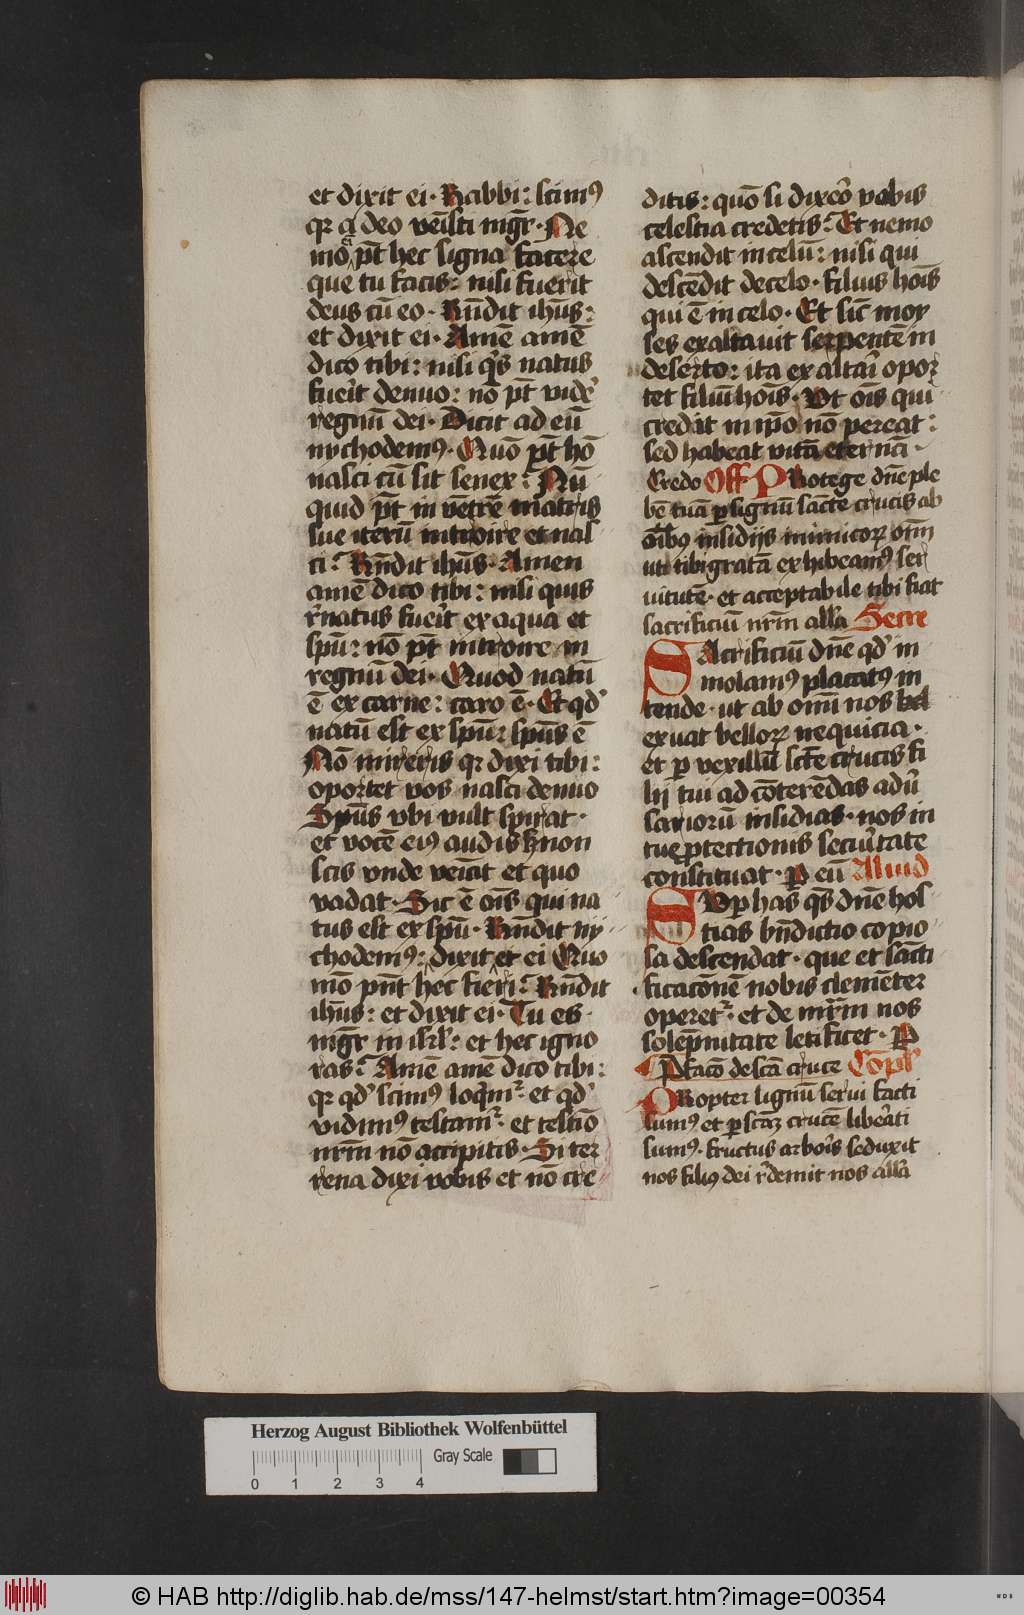 et dixit ei· Rabbi: scimꝰ
qꝛ a deo veīsti mgr̄· Ne
mo p̄t hec signa facere
que tu facis: nisi fuerit
deus cū eo· Rn̄dit ih̄us:
et dixit ei· Amē amē
dico tibi: nisi qͥs natus
fueͥt denuo: nō p̄t videͤ
regnū dei· Dicit ad eū
nychodemꝰ· Quō p̄t hō
nasci cū sit senex: Nū
quid p̄t in vētrē matris
sue iterū introire et nas
ci: Rn̄dit ih̄us· Amen
amē dico tibi: nisi quis
r̄natus fueͥt ex aqua et
spū: nō p̄t introire in
regnū dei· Quod natū
ē ex carne: caro ē· Et qd̓
natū est ex spū: spūs ē
Nō mireris qꝛ dixi tibi:
oportet vos nasci denuo
Spūs vbi vult spirat·
et vocē eiꝰ audis sꝫ non
scis vnde veīat et quo
vadat· Sic ē oīs qui na
tus est ex spū· Rn̄dit ny
chodemꝰ: dixit et ei Quo
mō pn̄t hec fieri: Rn̄dit
ih̄us: et dixit ei· Tu es
mgr̄ in isrl̄: et hec igno
ras: Amē amē dico tibi:
qꝛ qd̓ scimꝰ loqͥmr̄· et qd̓
vidimꝰ testamr̄· et testīo
nr̄m nō accipitis· Si ter
rena dixi vobis et nō cre
ditis: quō si dixeͦ vobis
celestia credetis: Et nemo
ascendit in celū: nisi qui
descēdit de celo· filius hoīs
qui ē in celo· Et sic̄ moy
ses exaltauit serpentē in
deserto: ita exaltaͥ opor
tet filiū hoīs· Vt oīs qui
credit in ip̄o nō pereat:
sed habeat vitā eternā·
Credo Off Protege dn̄e ple
bē tuā ꝑ signū sancte crucis ab
oībꝰ insidijs inimicoꝝ oīm
ut tibi gratā exhibeamꝰ ser
uitutē· et acceptabile tibi fiat
sacrificiū nr̄m all̄a Secre
Sacrificiū dn̄e qd̓ in
molamꝰ placatꝰ in
tende· ut ab omi nos
exuat belloꝝ nequicia·
et ꝑ vexillū scē crucis fi
lij tui ad cōterēdas adū
sarioru insidias· nos in
tue ꝓtectionis secūitate
constituat· ꝑ eū Aliud
Suꝑ has qs̄ dn̄e hos
tias bn̄dictio copio
sa descendat· que et sancti
ficacōnē nobis clemēter
operetr̄· et de mr̄m nos
solēpnitate letificet· ꝑ
Pfacō de scā cruce Cōpl̄
Propter lignū serui facti
sumꝰ et ꝑ scāꝫ crucē libeͣti
sumꝰ· fructus arboͥs seduxit
nos filiꝰ dei r̄demit nos all̄a
Herzog August Bibliothek Wolfenbüttel
Gray Scale
0 1 2 3 4
© HAB http://diglib.hab.de/mss/147-helmst/start.htm?image=00354